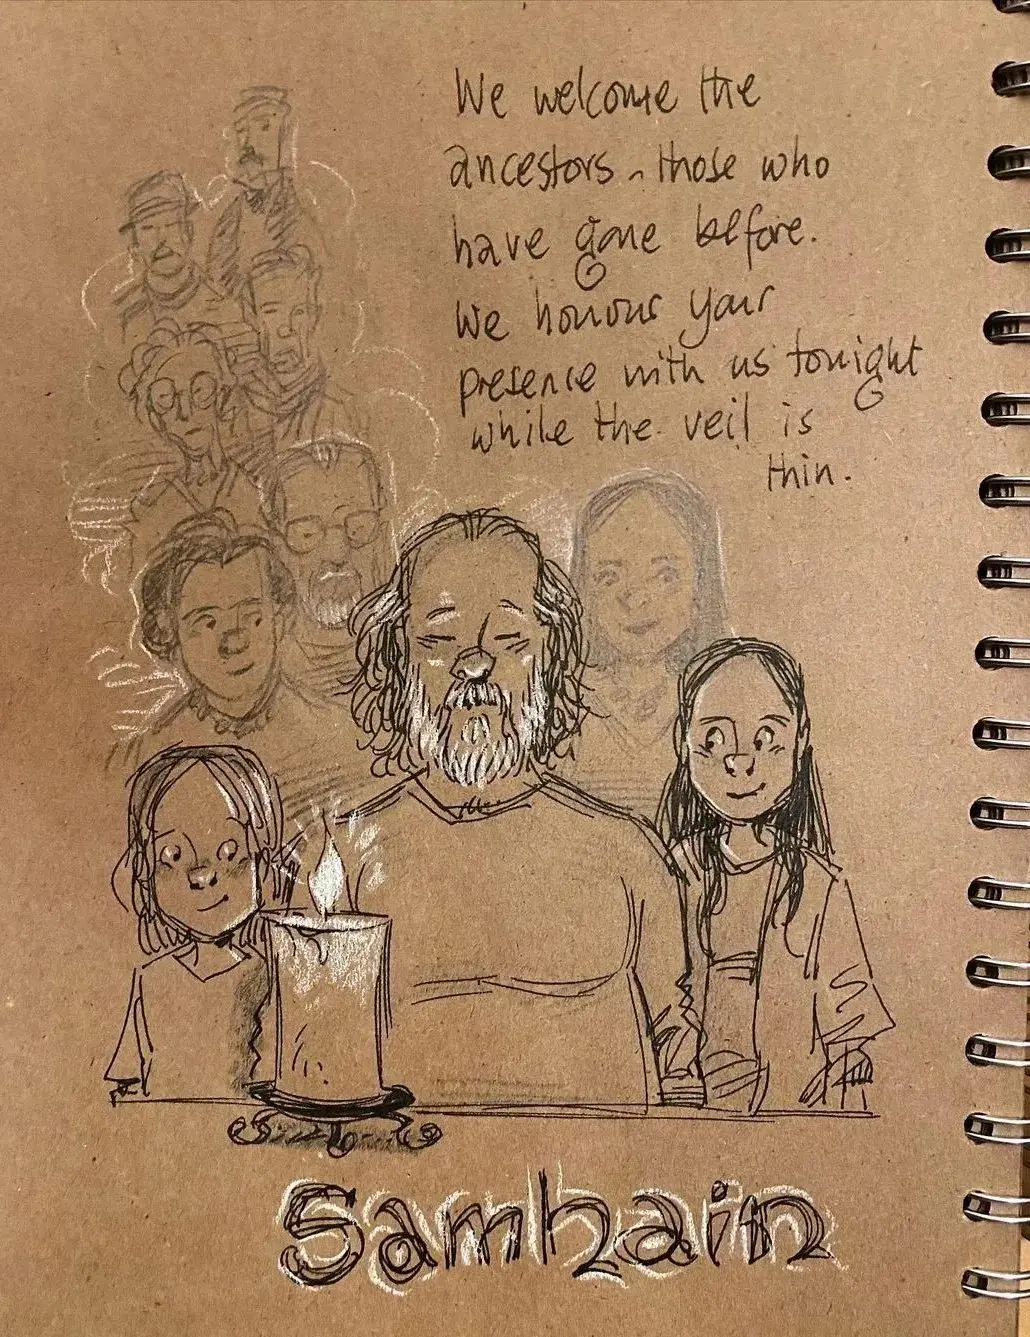 We welcome the
ancestors - those who
have gone before.
We honour your
presence with us tonight
while the veil is
thin.
Samhain